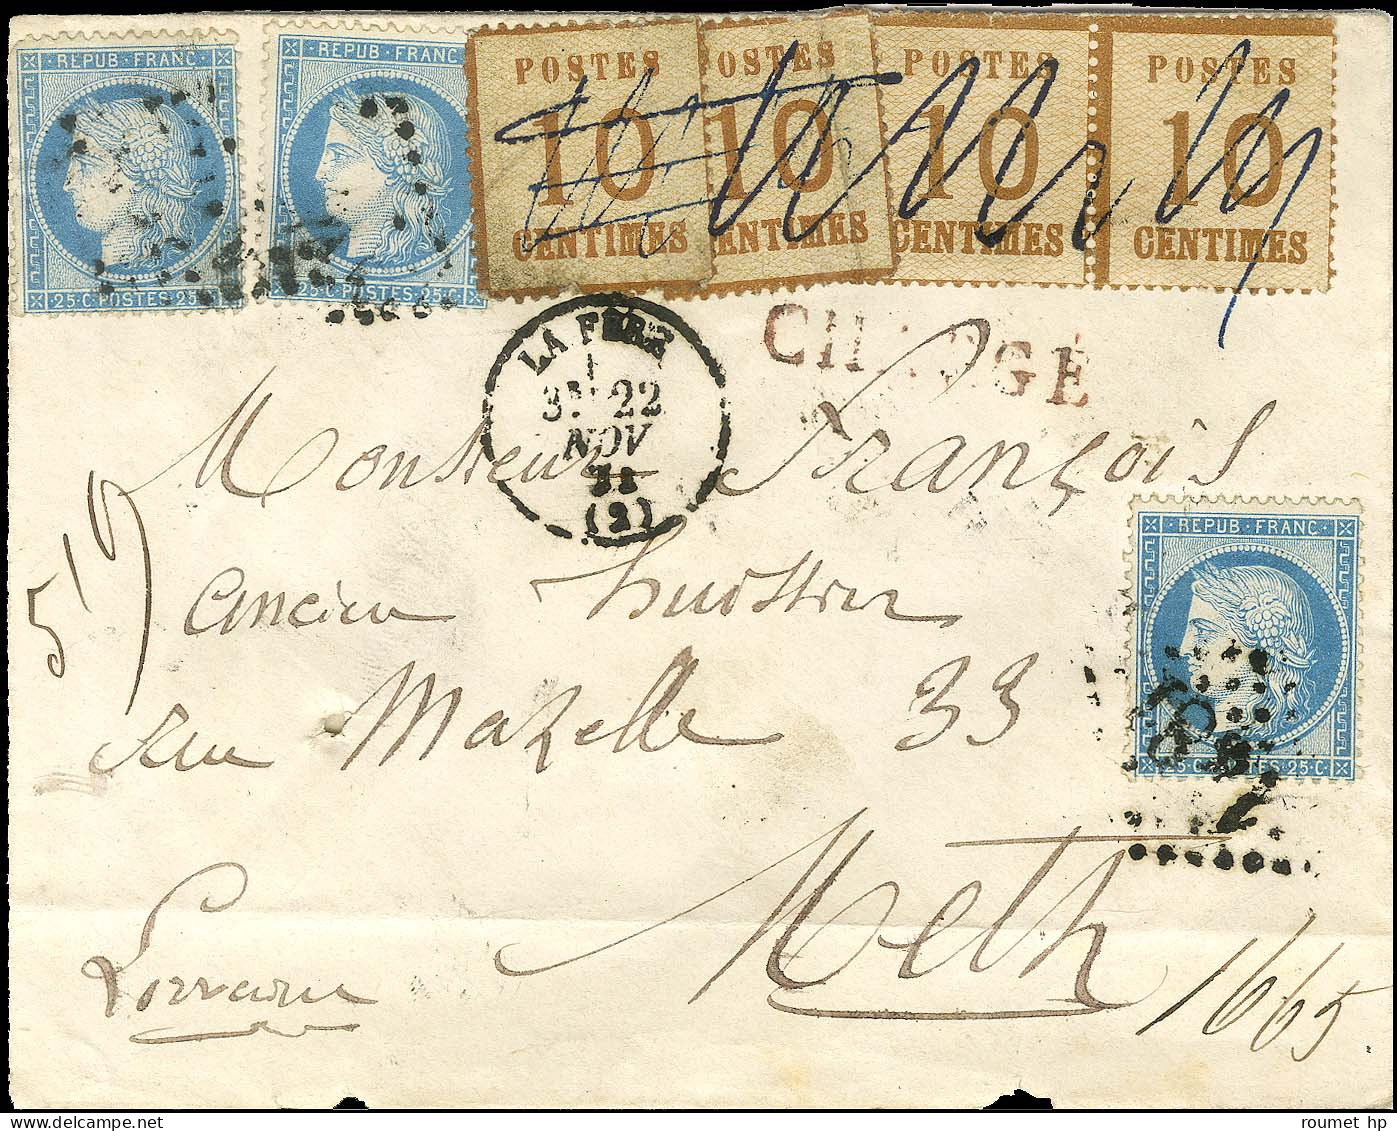 REPUB FRANC
25·C·POSTES·25·C
REPUB·FRANC
25·C·POSTES·25·C
POSTES
10
CENTIMES
POSTES
10
CENTIMES
POSTES
10
CENTIMES
POSTES
10
CENTIMES
CHARGÉ
LA FÈRE
3E 22
NOV
71
(2)
Monsieur François
ancien huissier
rue Mazelle 33
Metz
Lorraine
REPUB·FRANC·
25·C·POSTES·25·C·
1665
roumet hp